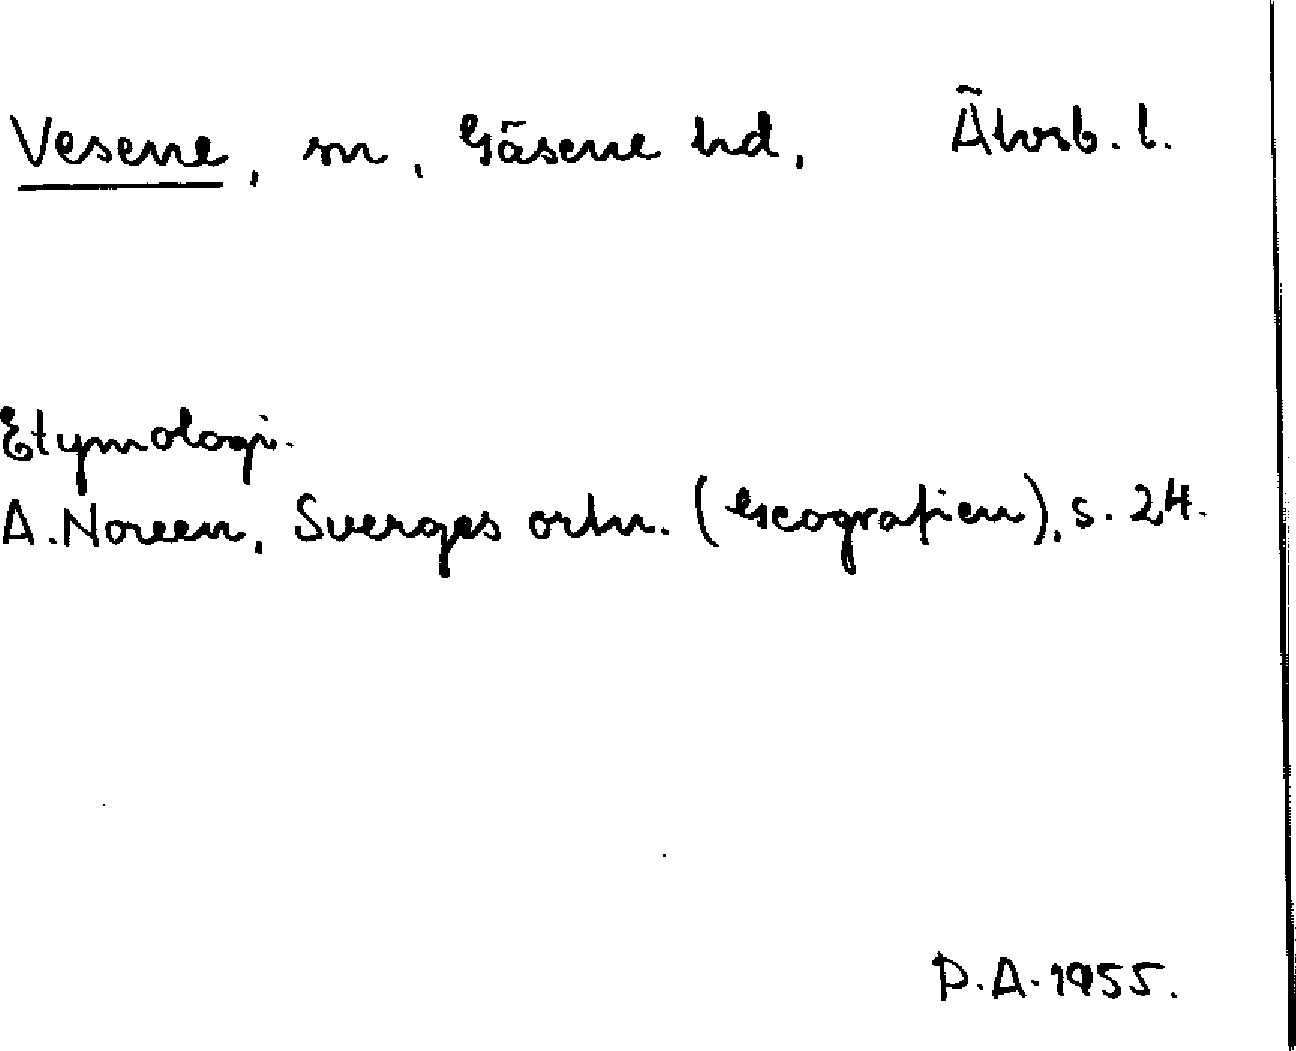 Vesene, sn, Gäsene hd, Älvsb. l.
Etymologi.
A. Noreen, Sverges ortn. (Geografien), s. 24.
P.A. 1955.